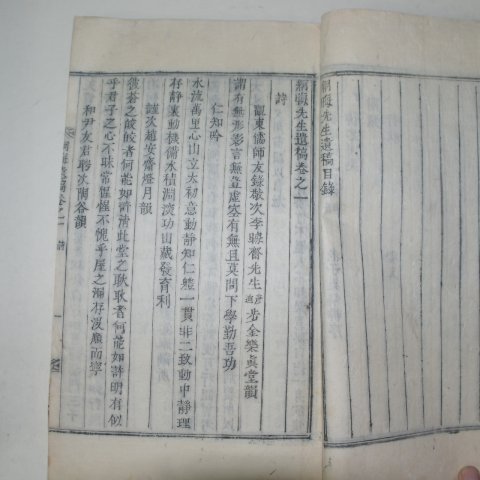 絅晦先生遺稿目錄
絅晦先生遺稿卷之一
詩
觀東儒師友錄敬次李聽 先生 步金樂眞堂韻
謂有無形影言無 虛塞有無且莫問下學勤吾功
仁知吟
水流萬里心山立太初意動靜知仁能一貫非二致動中靜理
存靜裏動機備水積淵淡功山藏發育利
謹次趙安齋燈月韻
彼蒼之皎皎者何能如許淸此堂之耿耿者何能如許明有似
乎君子之心不昧常惺惺不愧乎屋之漏存沒順而寧
和尹友君聘次閒谷韻